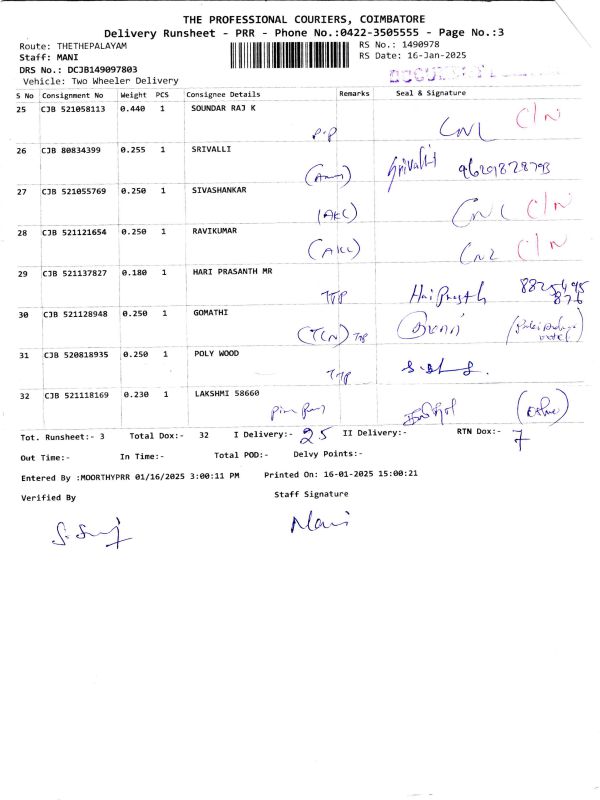 THE PROFESSIONAL COURIERS, COIMBATORE
Delivery Runsheet - PRR - Phone No.:0422-3505555 - Page No.:3
Route: THETHEPALAYAM RS No.: 1490978
Staff: MANI RS Date: 16-Jan-2025
DRS No.: DCJB149097803
Vehicle: Two Wheeler Delivery
S No Consignment No Weight PCS Consignee Details Remarks Seal & Signature
25 CJB 521058113 0.440 1 SOUNDAR RAJ K
P.P CNL C/N
26 CJB 80834399 0.255 1 SRIVALLI
Srivalli 9629828793
27 CJB 521055769 0.250 1 SIVASHANKAR
(AKC) CNL C/N
28 CJB 521121654 0.250 1 RAVIKUMAR
(AKC) CNL C/N
29 CJB 521137827 0.180 1 HARI PRASANTH MR
TTP Hari Prasath 8825495
876
30 CJB 521128948 0.250 1 GOMATHI
(TCN) TTP
31 CJB 520818935 0.250 1 POLY WOOD
TTP
32 CJB 521118169 0.230 1 LAKSHMI 58660
Tot. Runsheet:- 3 Total Dox:- 32 I Delivery:- 25 II Delivery:- RTN Dox:- 7
Out Time:- In Time:- Total POD:- Delvy Points:-
Entered By :MOORTHYPRR 01/16/2025 3:00:11 PM Printed On: 16-01-2025 15:00:21
Verified By Staff Signature
Mani